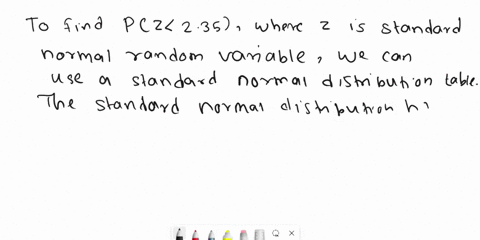 To find P(Z< 2.35), where z is standard
normal random variable, we can
use a standard normal distribution table.
The standard normal distribution h